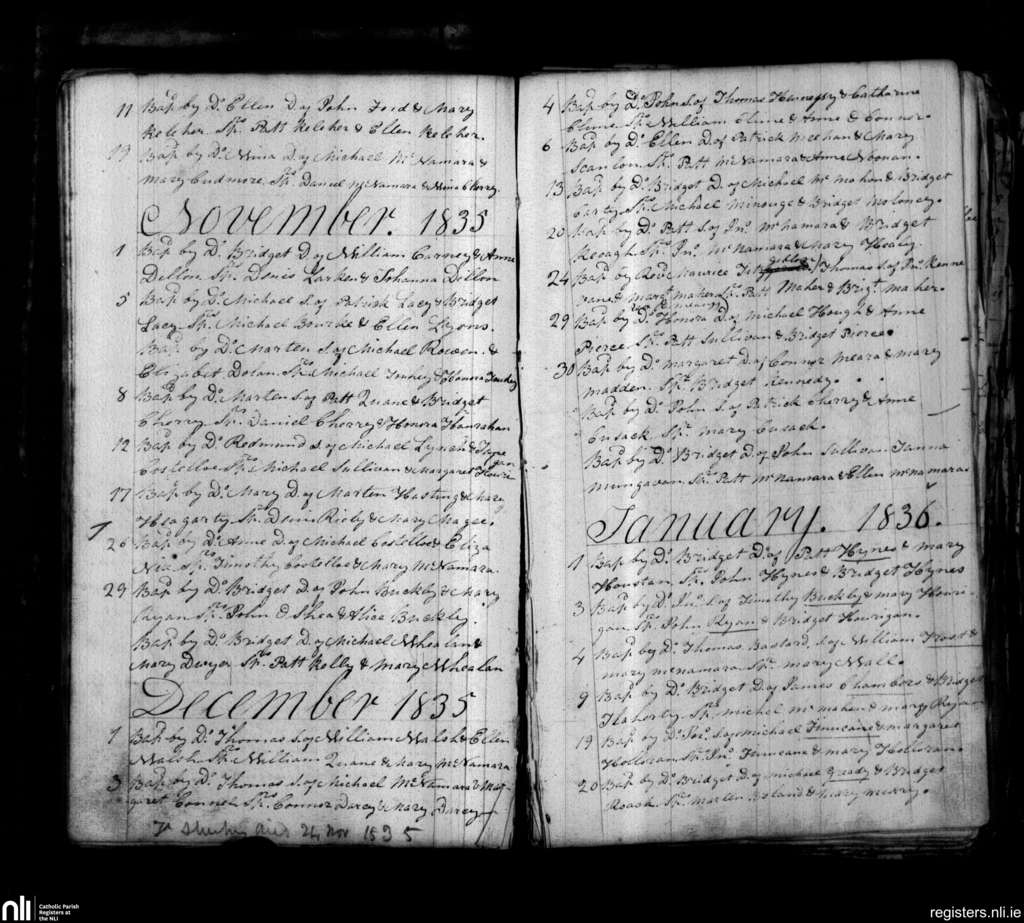 11 Bap. by Do. Ellen D. of John Ford & Mary
Kelcher Sprs. Patt Kelcher & Ellen Kelcher.
19 Bap. by Do. Nina D. of Michael McNamara &
Mary Cudmore Sprs. Daniel McNamara & Nina Chorry.
November. 1835
1 Bap. by D. Bridget D. of William Carney & Anne
Dillon Sprs. Denis Larken & Johanna Dillon
5 Bap. by Do. Michael S. of Patrick Lacy & Bridget
Lacy Sprs. Michael Bourke & Ellen Lyons.
Bap. by Do. Marten S. of Michael Rowen &
Elizabet Doran Sprs. Michael &  Honora
8 Bap. by Do. Marten S. of Patt Quane & Bridget
Chorry Sprs. Daniel Chorry & Honora Hanrahan
12 Bap. by Do. Redmund S. of Michael Lynan &
Costelloe Sprs. Michael Sullivan & Margaret
17 Bap. by Do. Mary D. of Marten Hasting & Mary
Heagarty Sprs. Denis & Mary Magee.
26 Bap. by Do. Anne D. of Michael Costelloe & Eliza
Nix Sprs. Timothy Costelloe & Mary McNamara.
29 Bap. by Do. Bridget D. of John Buckley & Mary
Ryan Sprs. John O Shea & Alice Buckley.
Bap. by Do. Bridget D. of Michael Whealan &
Mary Dwyer Sprs. Patt Kelly & Mary Whealan
December 1835
1 Bap. by Do. Thomas S. of William Walsh & Ellen
Walsh Sprs. William Quane & Mary McNamara
3 Bap. by Do. Thomas S. of Michael McNamara & Mar
garet Connel Sprs. Connor Darcy & Mary Darcy
died 24 Nov 1835
4 Bap. by Do. John S. of Thomas Hennessy & Catharine
Clune Sprs. William Clune & Anne O Connor.
6 Bap. by Do. Ellen D. of Patrick Meehan & Mary
Scanlon Sprs. Patt McNamara & Anne Noonan.
13 Bap. by Do. Bridget D. of Michael Mc Mahon & Bridget
Carty Sprs. Michael Minouge & Bridget Moloney.
20 Bap. by Do. Patt S. of Jno. McNamara & Bridget
Keough Sprs. Jno. McNamara & Mary Healy.
24 Bap. by Revd. Maurice Fitzgibbon Thomas S. of Jno. Kenne
vane & Margt. Maher Sprs. Patt Maher & Brigt. Maher.
29 Bap. by Do. Honora D. of Michael Hough & Anne
Pierce Sprs. Patt Sullivan & Bridget Pierce.
30 Bap. by Do. Margaret D. of Connor Meara & Mary
Madden Spr. Bridget Kennedy.
Bap. by Do. John S. of Patrick Chorry & Anne
Cusack Spr. Mary Cusack.
Bap. by Do. Bridget D. of John Sullivan Janna
Mungavan Sprs. Patt McNamara & Ellen McNamara
January. 1836.
1 Bap. by Do. Bridget D. of Patt Hynes & Mary
Houstan Sprs. John Hynes & Bridget Hynes
3 Bap. by Do. Jno. S. of Timothy Buckley & Mary Houri-
gan Sprs. John Ryan & Bridget Hourigan.
4 Bap. by D. Thomas Bastard S. of William Frost &
Mary McNamara Spr. Mary Wall.
9 Bap. by Do. Bridget D. of James Chambers & Bridget
Flaherty Sprs. Michel McMahon & Mary Ryan
19 Bap. by Do. S. of Michael Finucane & Margaret
Holloran Sprs. Jno. Finucane & Mary Holloran.
20 Bap. by Do. Bridget D. of Michael Gready & Bridget
Roach Sprs. Marten Boland & Mary Merry.
nli Catholic Parish
Registers at
the NLI
registers.nli.ie